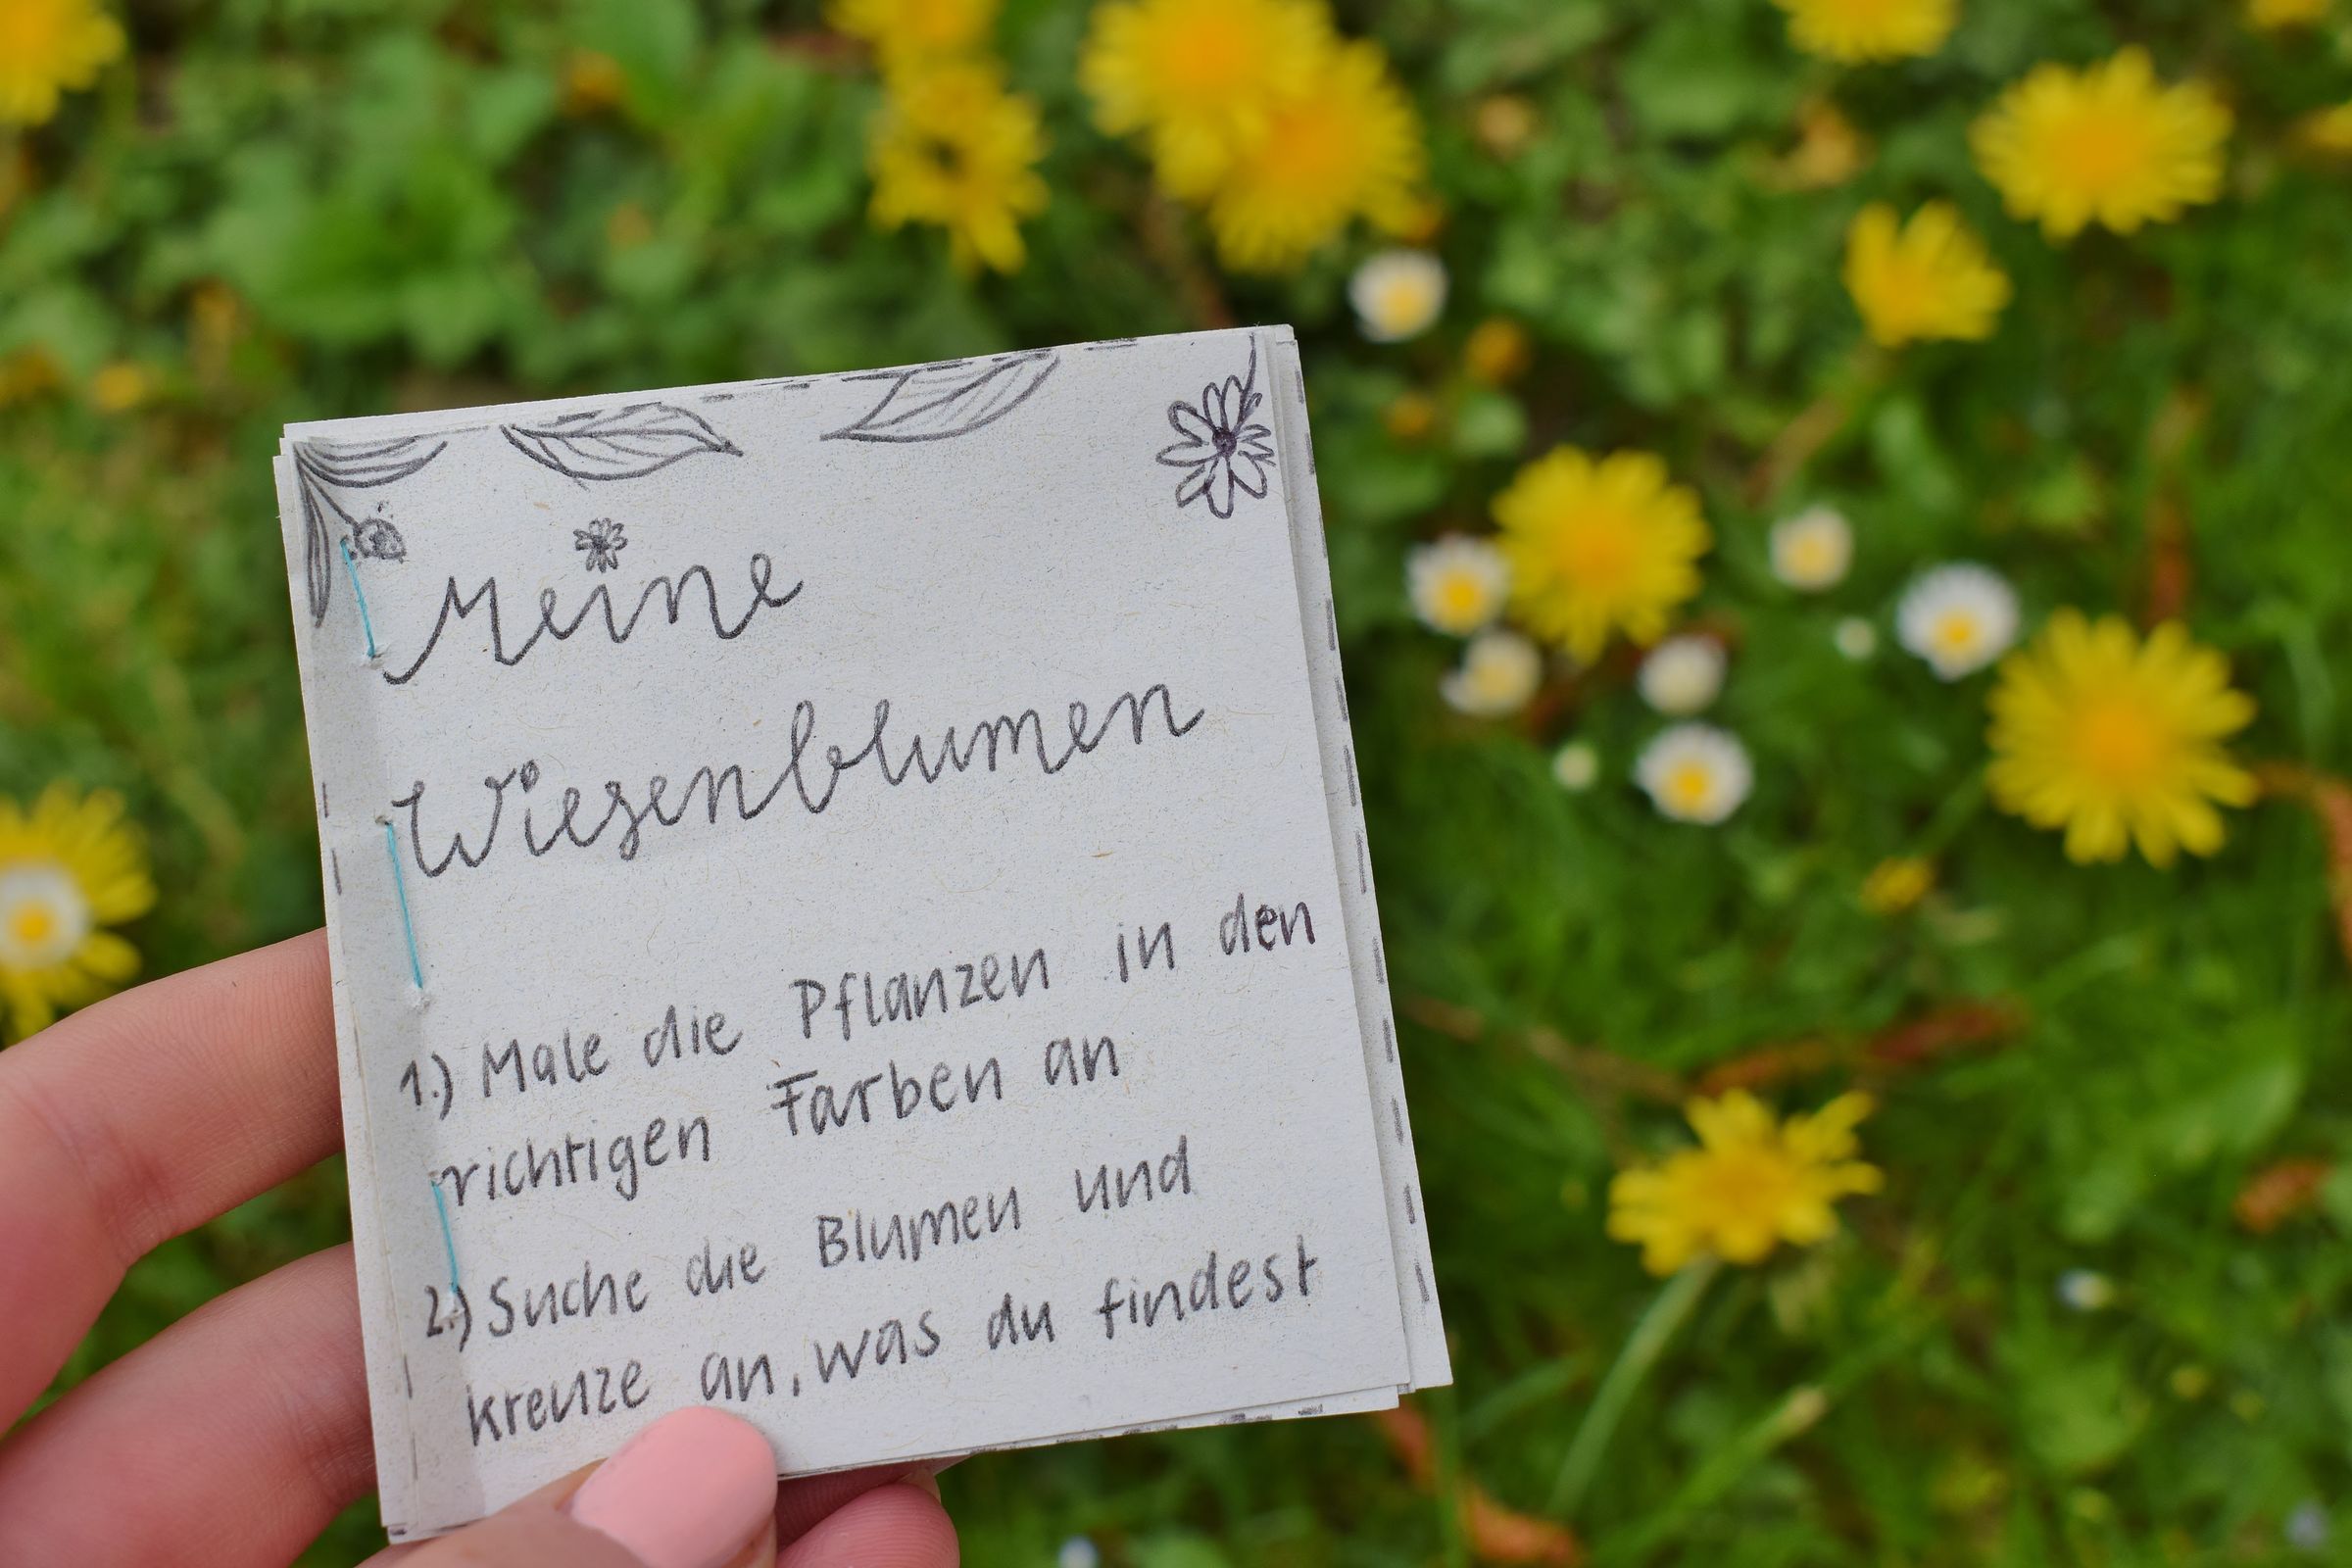 Meine
Wiesenblumen
1.) Male die Pflanzen in den
richtigen Farben an
2.) Suche die Blumen und
kreuze an, was du findest